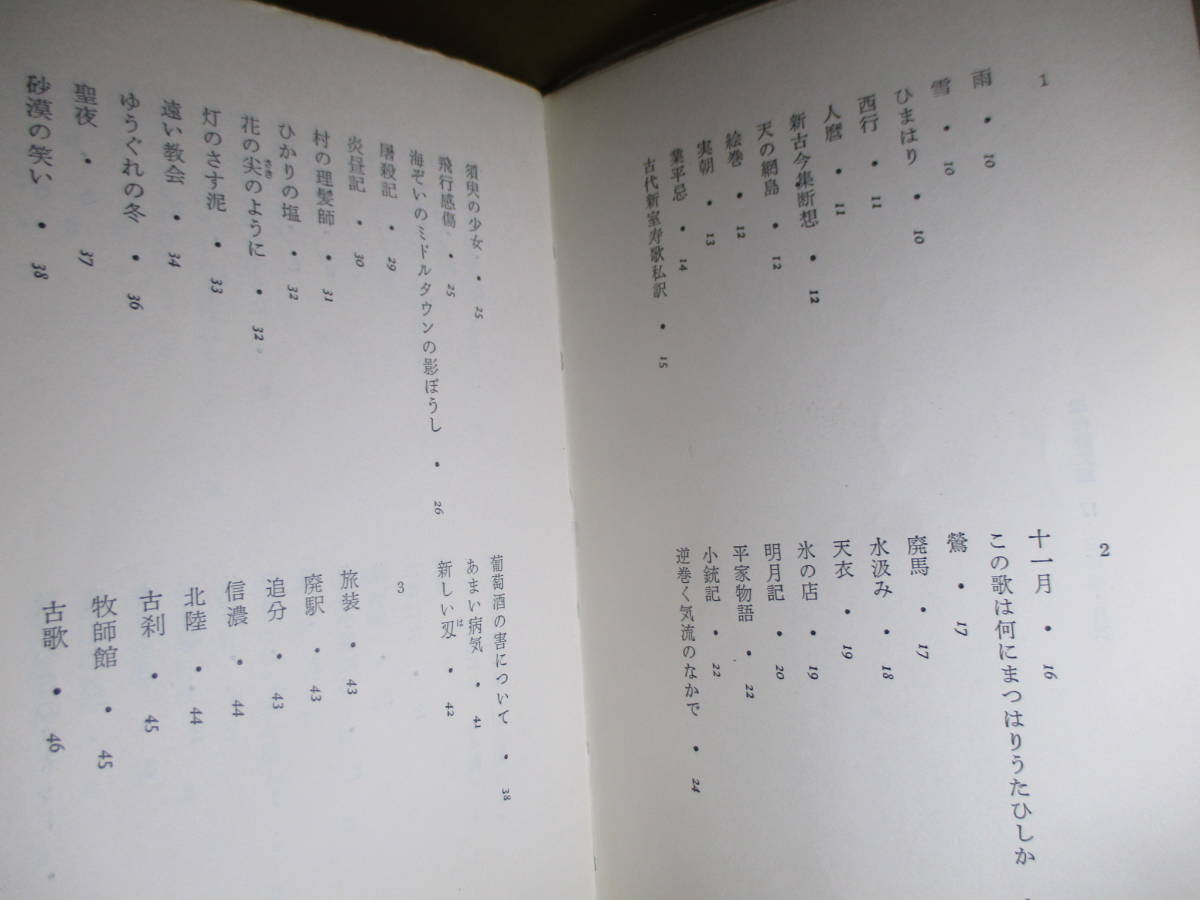 1
雨・10
雪・10
ひまはり・10
西行・11
人麿・11
新古今集断想・12
天の網島・12
絵巻・12
実朝・13
業平忌・14
古代新室寿歌私訳・15
2
十一月・16
この歌は何にまつはりうたひしか・
鶯・17
廃馬・17
水汲み・18
天衣・19
氷の店・19
明月記・20
平家物語・22
小銃記・22
逆巻く気流のなかで・24
須臾の少女・25
飛行感傷・25
海ぞいのミドルタウンの影ぼうし・26
屠殺記・29
炎昼記・30
村の理髪師・31
ひかりの塩・32
花の尖のように・32
さき
灯のさす泥・33
遠い教会・34
ゆうぐれの冬・36
聖夜・37
砂漠の笑い・38
葡萄酒の害について・38
あまい病気・41
新しい刄・42
は
3
旅装・43
廃駅・43
追分・43
信濃・44
北陸・44
古刹・45
牧師館・45
古歌・46